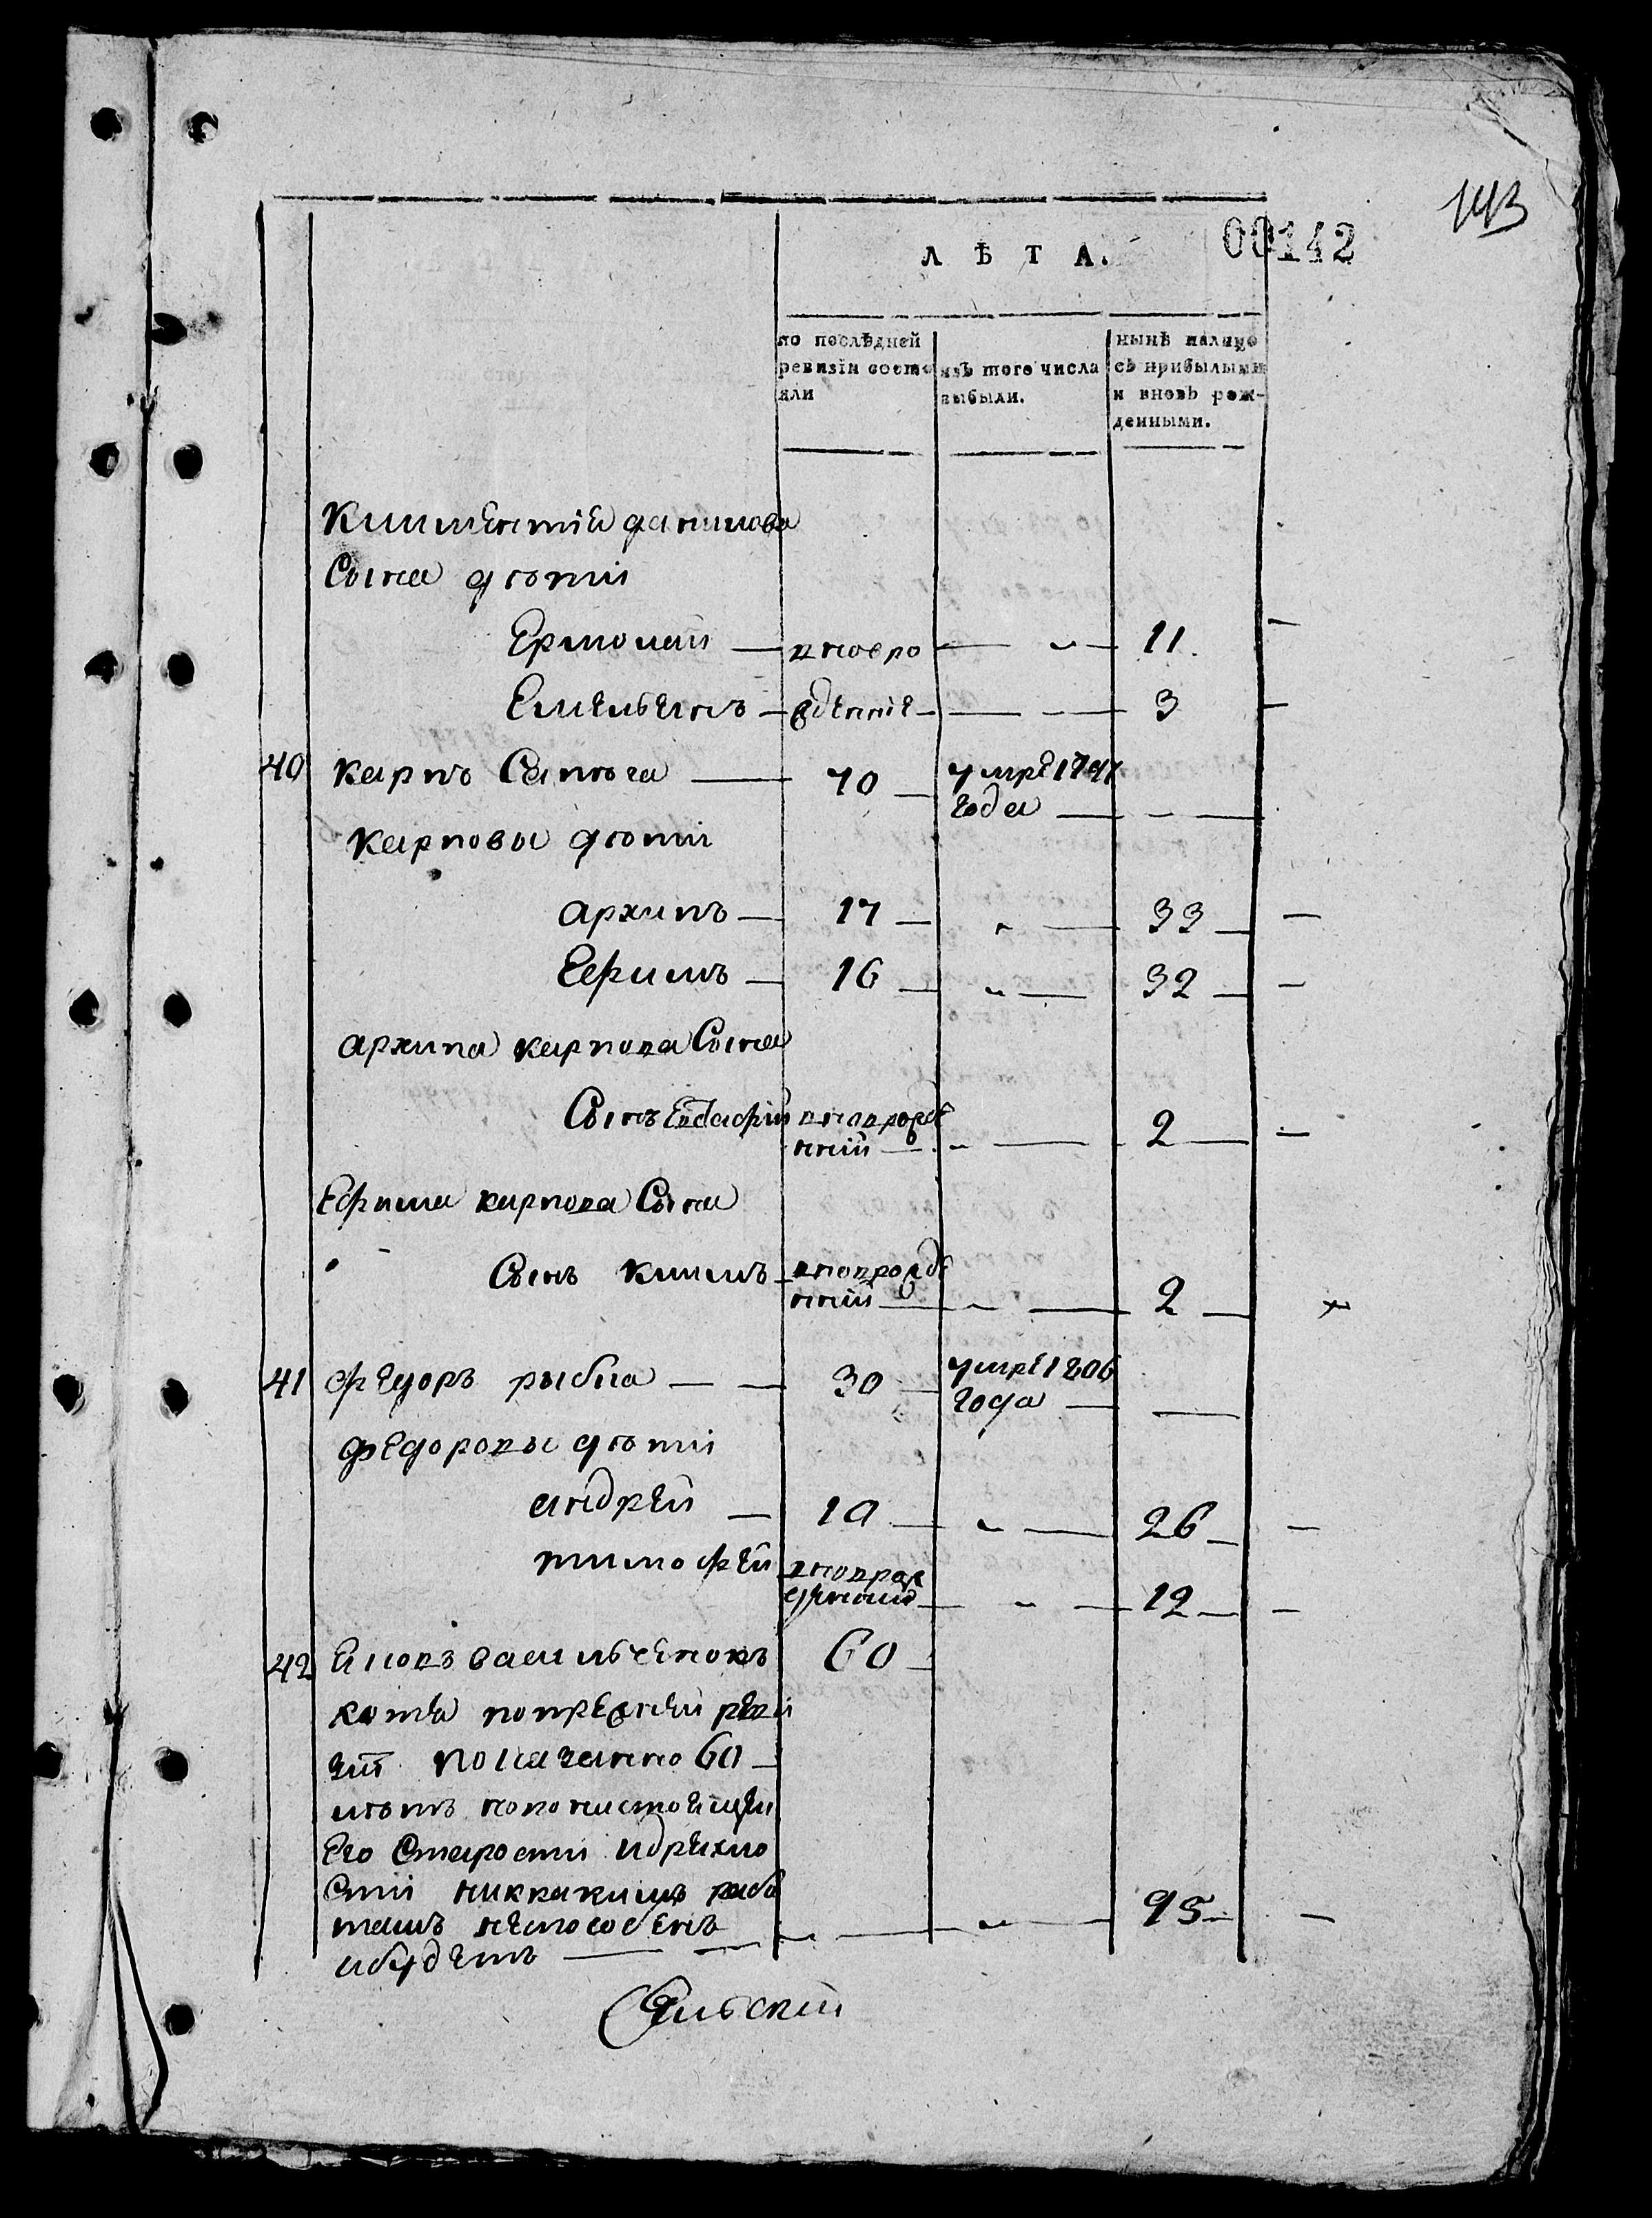 143
00142
ЛѢТА.
по послѣдней ревизіи состояли
изъ того числа выбыли.
нынѣ налицо съ прибылыми и вновь рожденными.
Климентія данилова
Сына дѣти
Ермолай — вновро — " — 11
Емельянъ — жденніе — — 3
40 карпъ Сапѣга — 70 — умре 1797 года — — —
карповы дѣти
архипъ — 17 — " — 33 —
Ефимъ — 16 — " — 32 —
архипа карпова Сына
Сынъ Евстафій вновророжде нній — " — 2 —
Ефима карпова Сына
Сынъ климъ вноврожде нній — " — 2 —
41 Федоръ рыбка — — 30 — умре 1806 года — —
Федоровы дѣти
андрей — 10 — " — 26 —
тимофей вноврож денній — " — 12 —
42 василченокъ 60 —
хотя попрежней реви
зіи показанно 60 —
лѣтъ нопонастоящей
Его Старости идряхло
Сти никакимъ рабо
тамъ неспособенъ — " — 95 —
ибудетъ — —